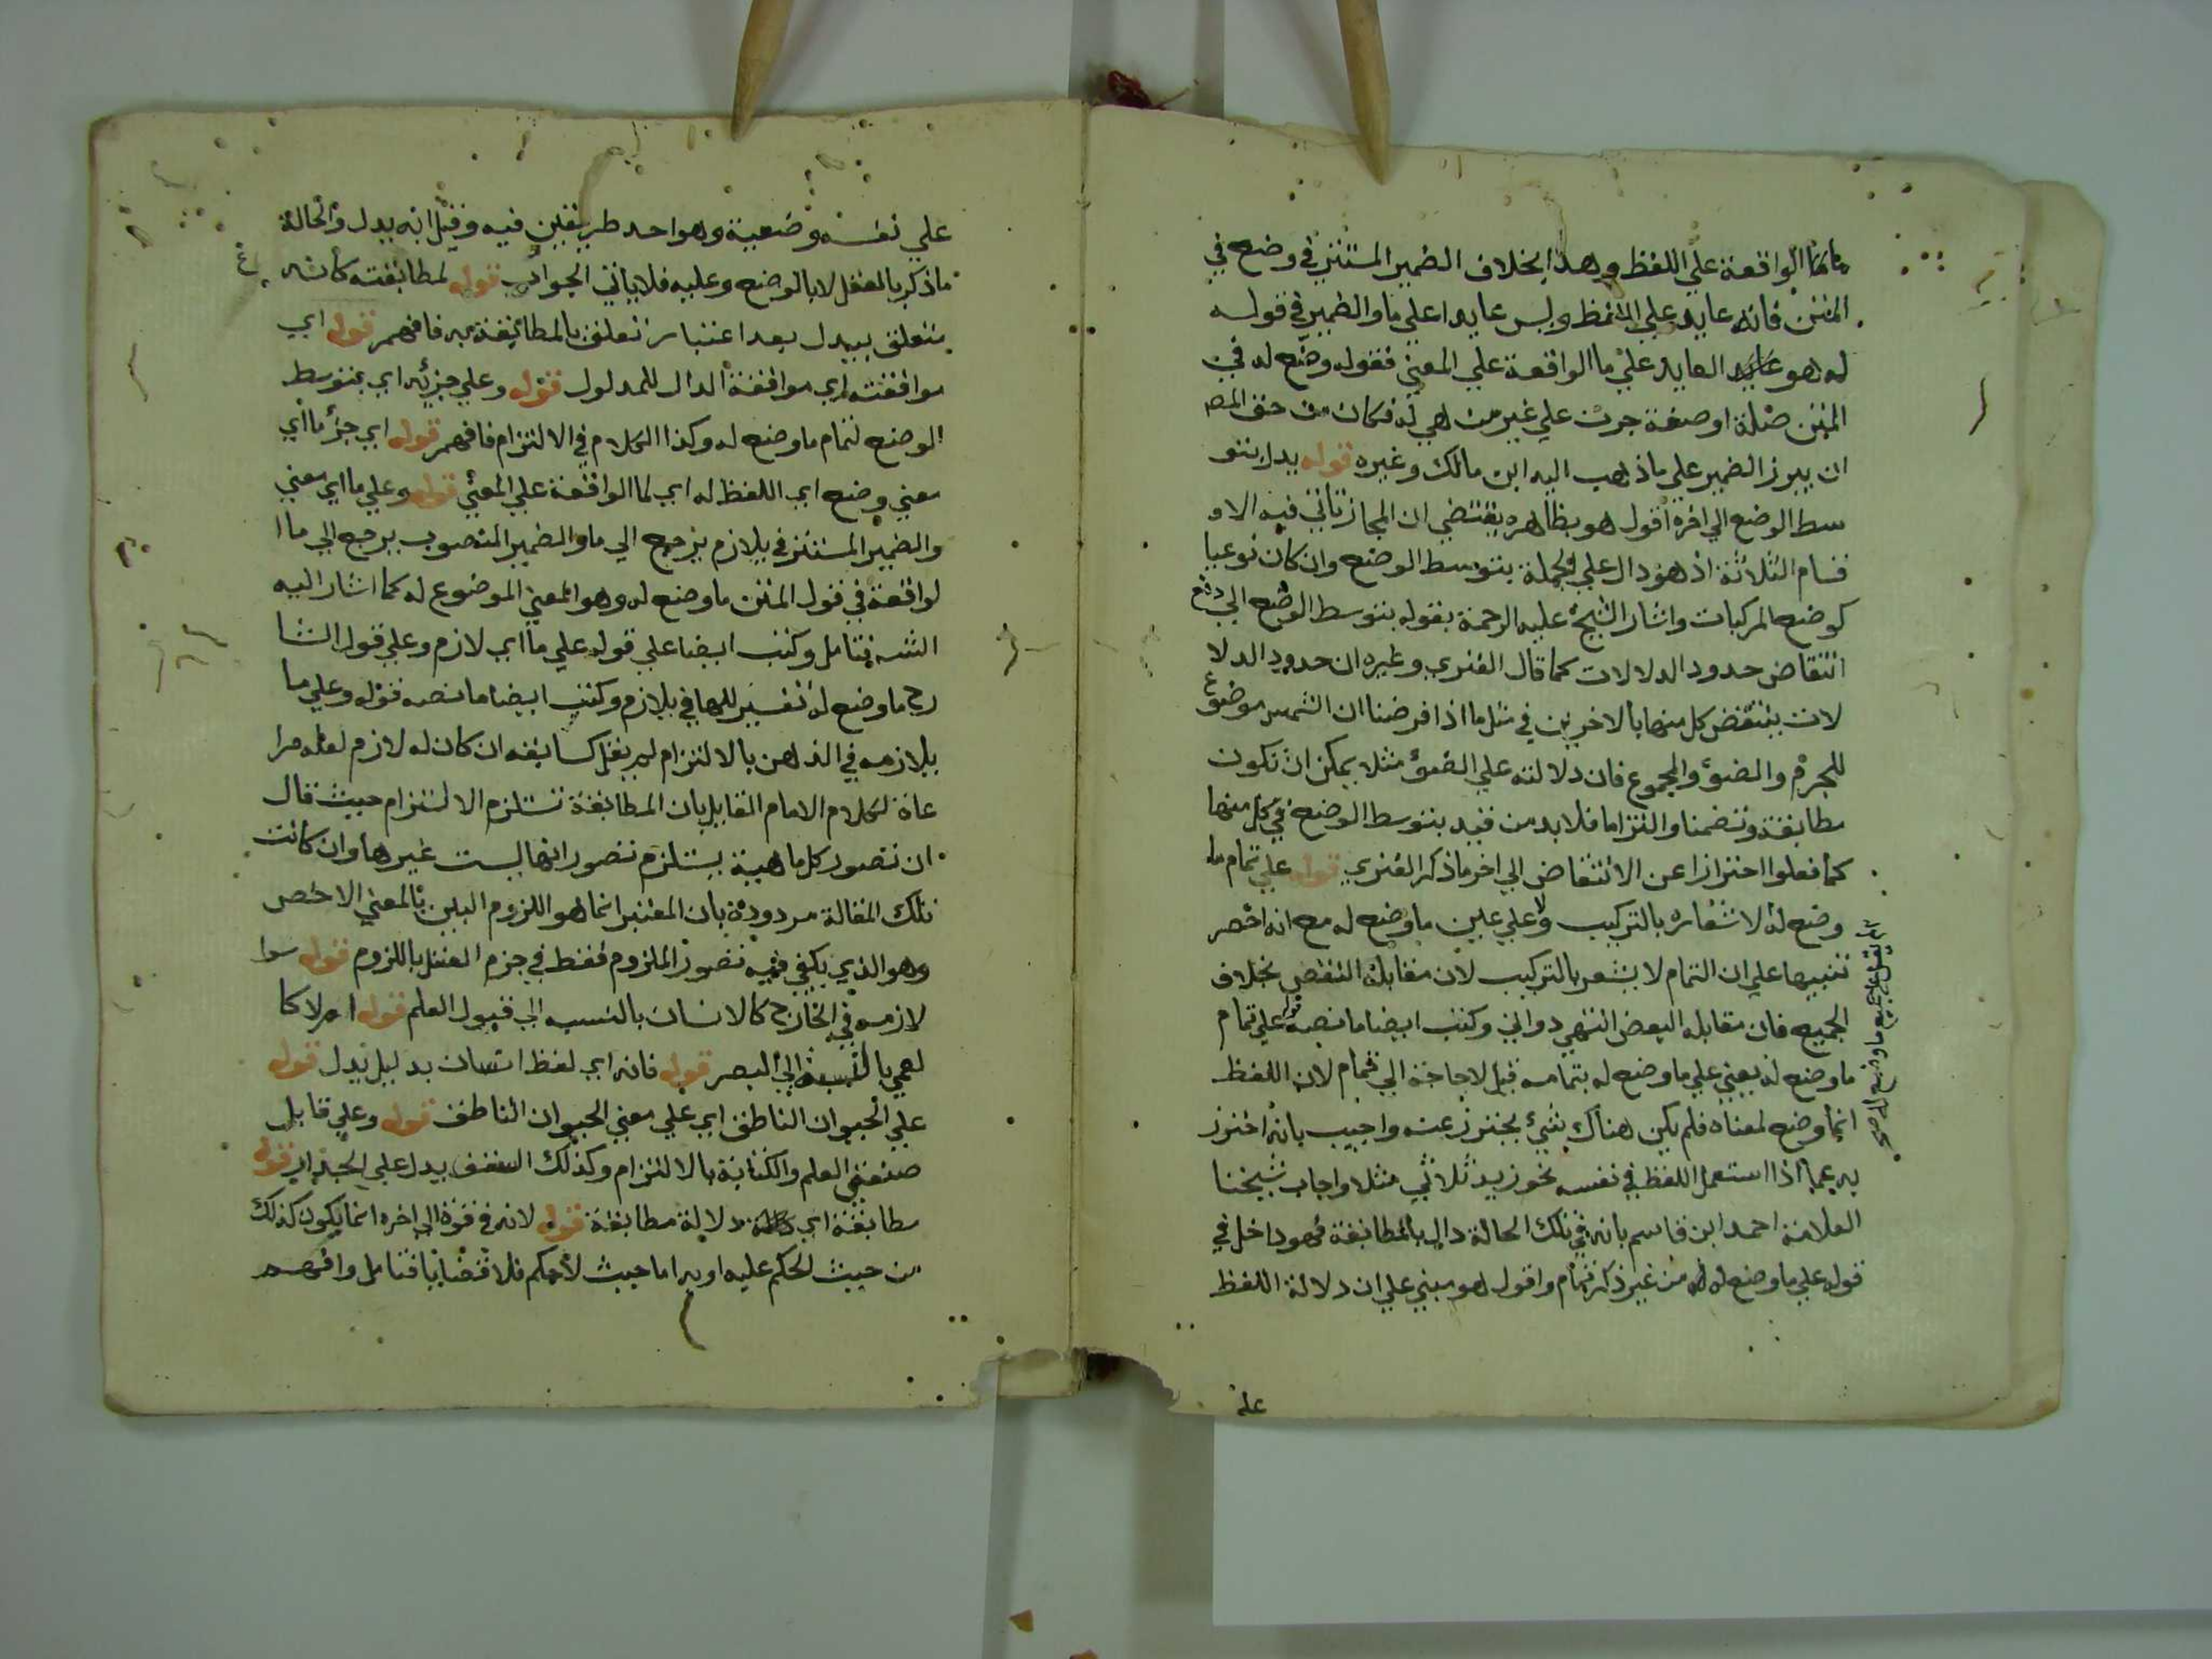 ما لها الواقعة علي اللفظ وهذا بخلاف الضمير المستتر في وضع في
المتن فانه عايد علي اللفظ وليس عايدا علي ما والضمير في قوله
له هو العايد علي ما الواقعة علي المعني فقوله وضع له في
المتن صلة او صفة جرت علي غير من هي له فكان من حق المص
ان يبرز الضمير علي ما ذهب اليه ابن مالك وغيره قوله يدل بتو
سط الوضع الي اخره اقول هو بظاهره يقتضي ان المجاز تاتي فيه الا
قسام الثلاثة اذ هو دال علي الجملة بتوسط الوضع وان كان نوعيا
كوضع المركبات واشار الشيخ عليه الرحمة بقوله بتوسط الوضع الي دفع
انتقاض حدود الدلالات كما قال الفنري وغيره ان حدود الدلا
لات ينتقض كل منها بالاخرين في مثل ما اذا فرضنا ان الشمس موضوع
للجرم والضوء والمجموع فان دلالته علي الضوء مثلا يمكن ان تكون
مطابقة وتضمنا والتزاما فلا بد من قيد بتوسط الوضع في كل منها
كما فعلوا احترازا عن الانتقاض الي اخر ما ذكر الفنري قوله علي تمام ما
وضع له لاشعاره بالتركيب ولا علي عين ما وضع له مع انه اخصر
تنبيها علي ان التمام لا يشعر بالتركيب لان مقابله النقص بخلاف
الجميع فان مقابله البعض انتهي دواني وكتب ايضا ما نصه قوله علي تمام
ما وضع له يعني علي ما وضع له بتمامه قيل لا حاجة الي تمام لان اللفظ
انما وضع لمعناه فلم يكن هناك شيء يحترز عنه واجيب بانه احترز
به عما اذا استعمل اللفظ في نفسه نحو زيد ثلاثي مثلا واجاب شيخنا
العلامة احمد ابن قاسم بانه في تلك الحالة دال بالمطابقة فهو داخل في
قوله علي ما وضع له من غير ذكر تمام واقول هو مبني علي ان دلالة اللفظ
علي
علي نفسه وضعية وهو احد طريقين فيه وقيل انه يدل والحالة
ما ذكر بالعقل لا بالوضع وعليه فلا ياتي الجواب قوله لمطابقته كانه
متعلق بيدل بعد اعتبار تعلق بالمطابقة به فافهم قوله اي
موافقته اي موافقة الدال للمدلول قوله وعلي جزئه اي بتوسط
الوضع لتمام ما وضع له وكذا الكلام في الالتزام فافهم قوله اي جزء ما اي
معني وضع اي اللفظ له اي لما الواقعة علي المعني قوله وعلي ما اي معني
والضمير المستتر في يلازم يرجع الي ما والضمير المنصوب يرجع الي ما ا
لواقعة في قول المتن ما وضع له وهو المعني الموضوع له كما اشار اليه
الشه فتامل وكتب ايضا علي قوله علي ما اي لازم وعلي قول الشا
رح ما وضع له تفسير للها في يلازم وكتب ايضا ما نصه قوله وعلي ما
يلازمه في الذهن بالالتزام لم يقل كسابقه ان كان له لازم لعله مرا
عاة لكلام الامام القايل بان المطابقة تستلزم الالتزام حيث قال
ان تصور كل ماهية يستلزم تصور انها ليست غيرها وان كانت
تلك المقالة مردودة بان المعتبر انما هو اللزوم البين بالمعني الاخص
وهو الذي يكفي فيه تصور الملزوم فقط في جزم العقل باللزوم قوله سوا
لازمه في الخارج كالانسان بالنسبه الي قبول العلم قوله ام لا كا
لعمي بالنسبة الي البصر قوله فانه اي لفظ انسان بدليل يدل قوله
علي الحيوان الناطق اي علي معني الحيوان الناطق قوله وعلي قابل
صنعة العلم والكتابة بالالتزام وكذلك السقف يدل علي الجدار قوله
مطابقة اي دلالة مطابقة قوله لانه في قوة الي اخره انما يكون كذلك
من حيث الحكم عليه او به اما حيث لا حكم فلا قضايا فتامل وافهم